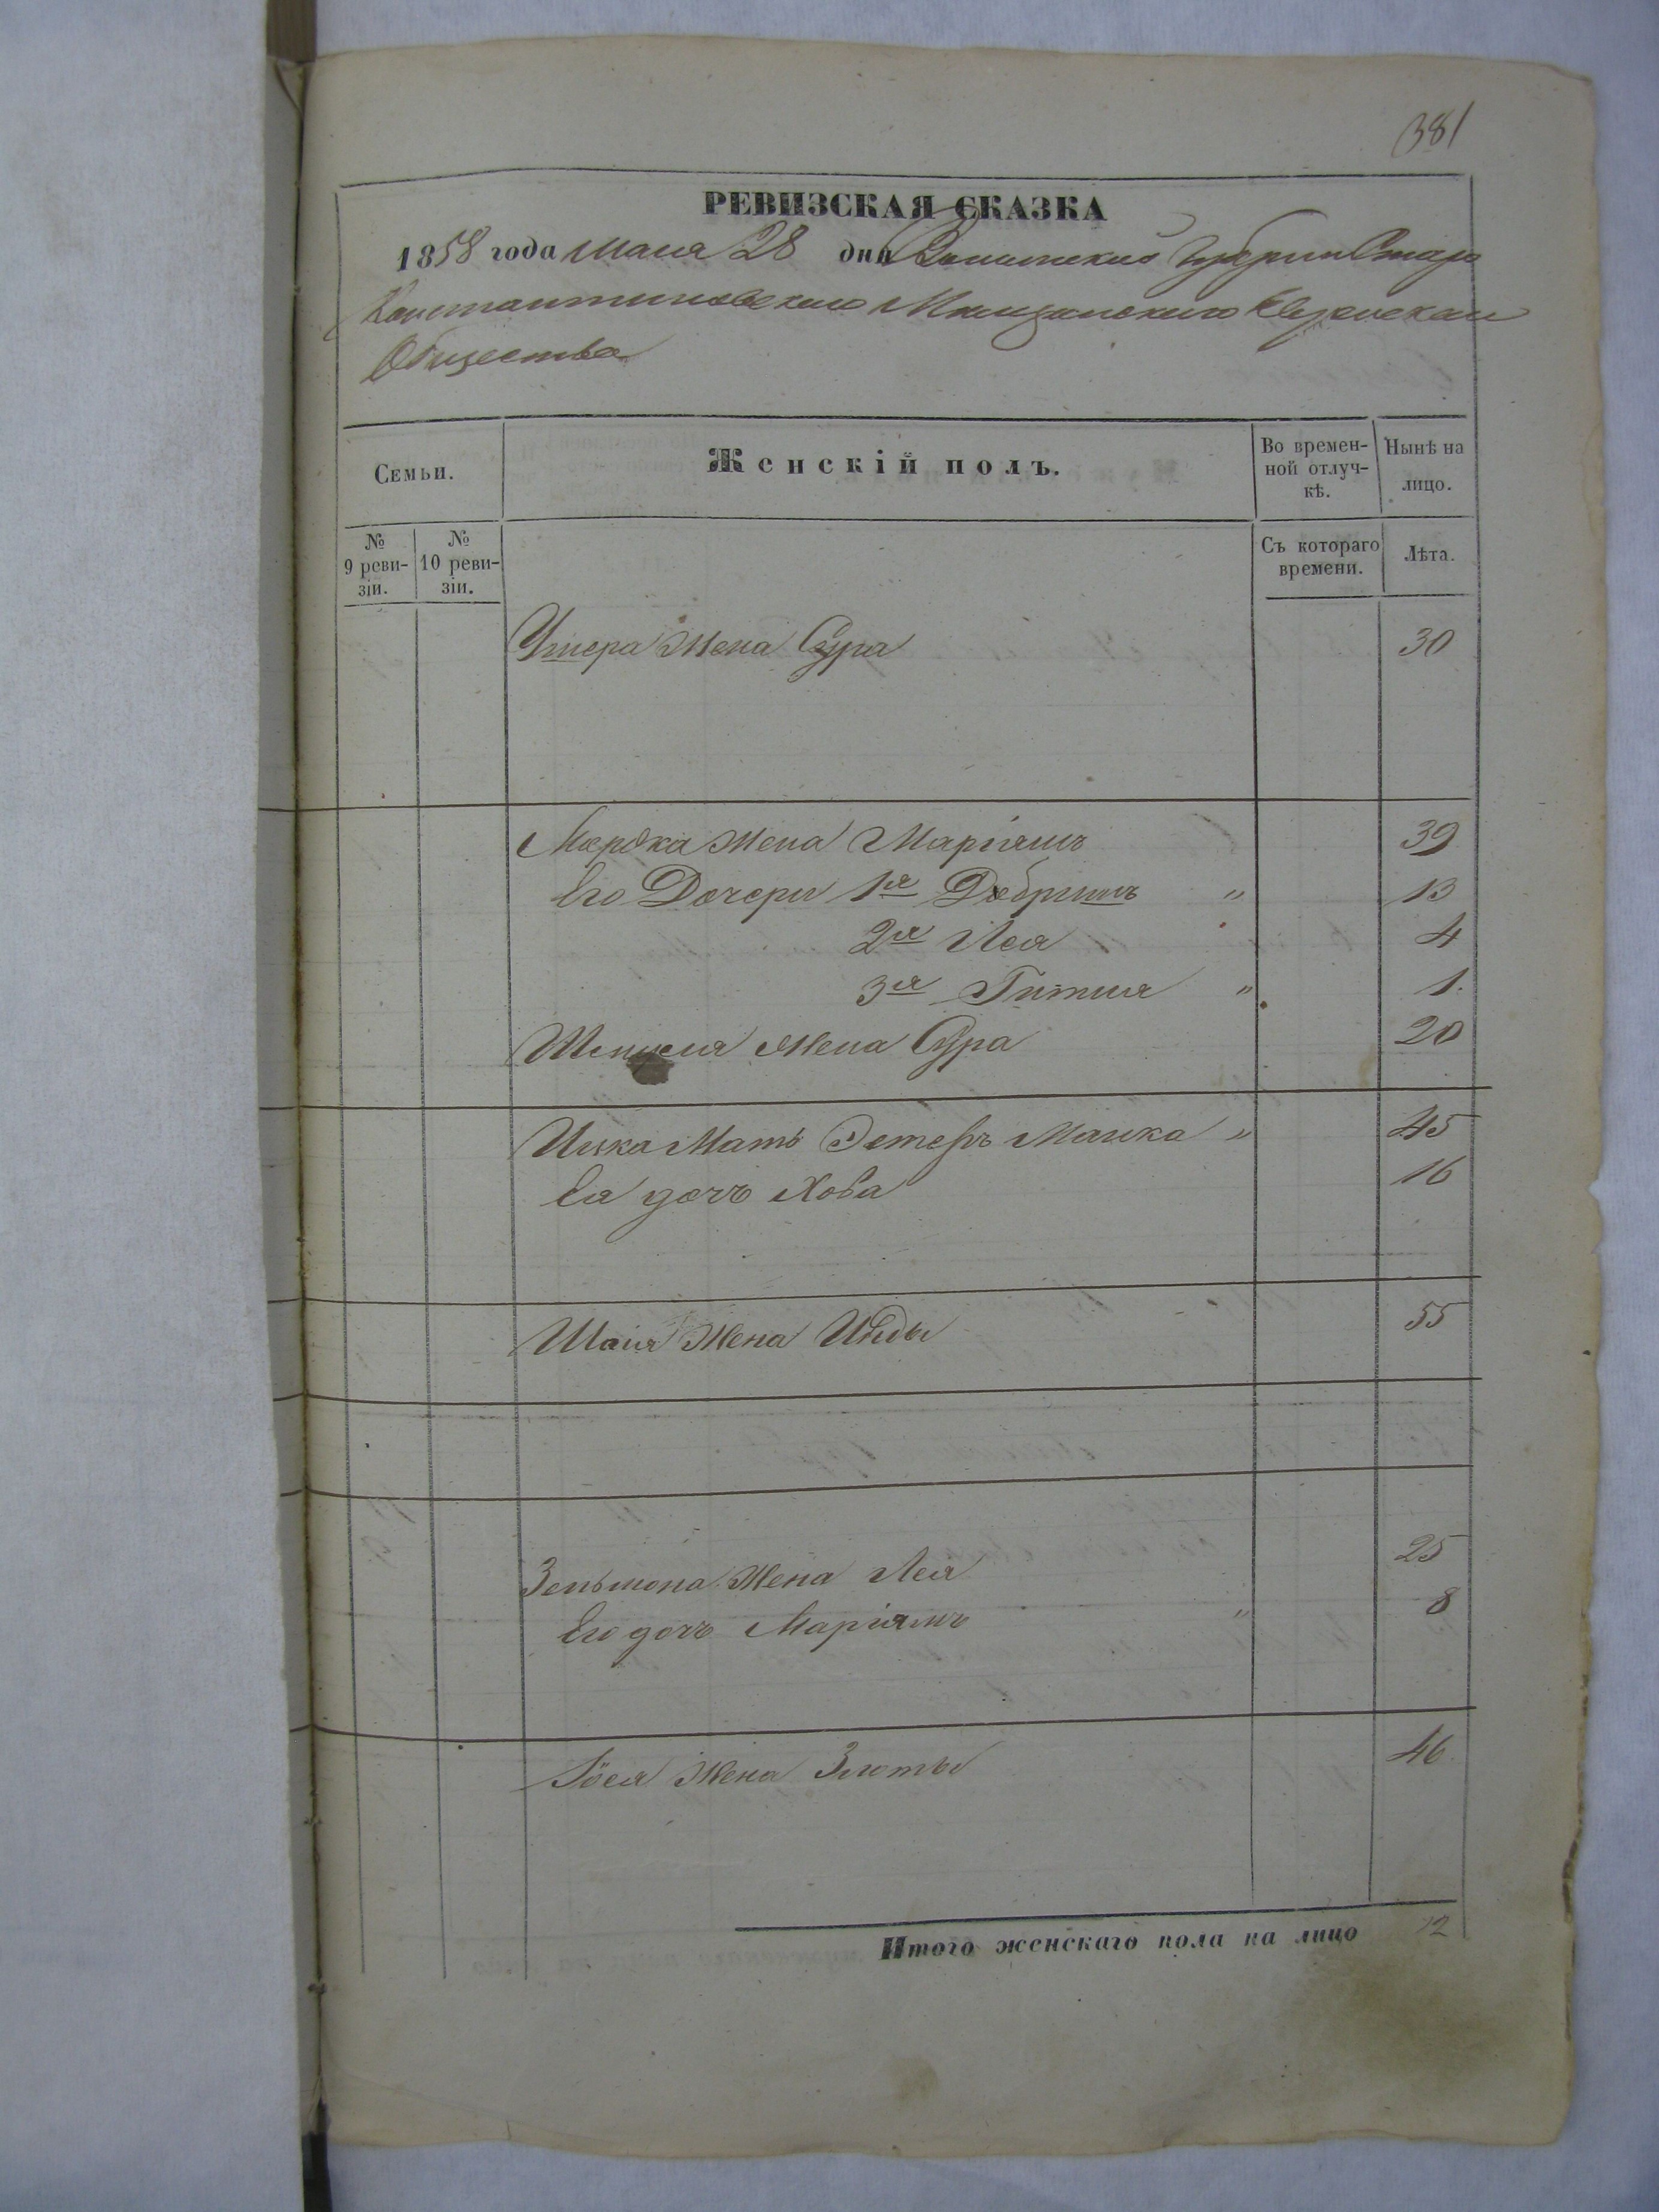 381
РЕВИЗСКАЯ СКАЗКА
1858 года мая 28 дня Волынской Губернии Старо
Константиновского Мещанского Еврейскаго
Общества
Семьи.
Женскій полъ.
Во времен-
ной отлуч-
кѣ.
Нынѣ на
лицо.
№
9 реви-
зіи.
№
10 реви-
зіи.
Съ котораго
времени.
Лѣта.
жена Сура 30
Мордка жена Маріямъ 39
Его Дочери 1я Добришъ " 13
2я Лея 4
3я Гитля " 1.
жена Сура 20
Ицка Мать Эстеръ Малка " 45
Ея дочь Хова 16
Шаія жена 55
Зельмона жена Лея 25
Его дочь Маріямъ " 8
Іося жена Злоты 46
Итого женскаго пола на лицо 12